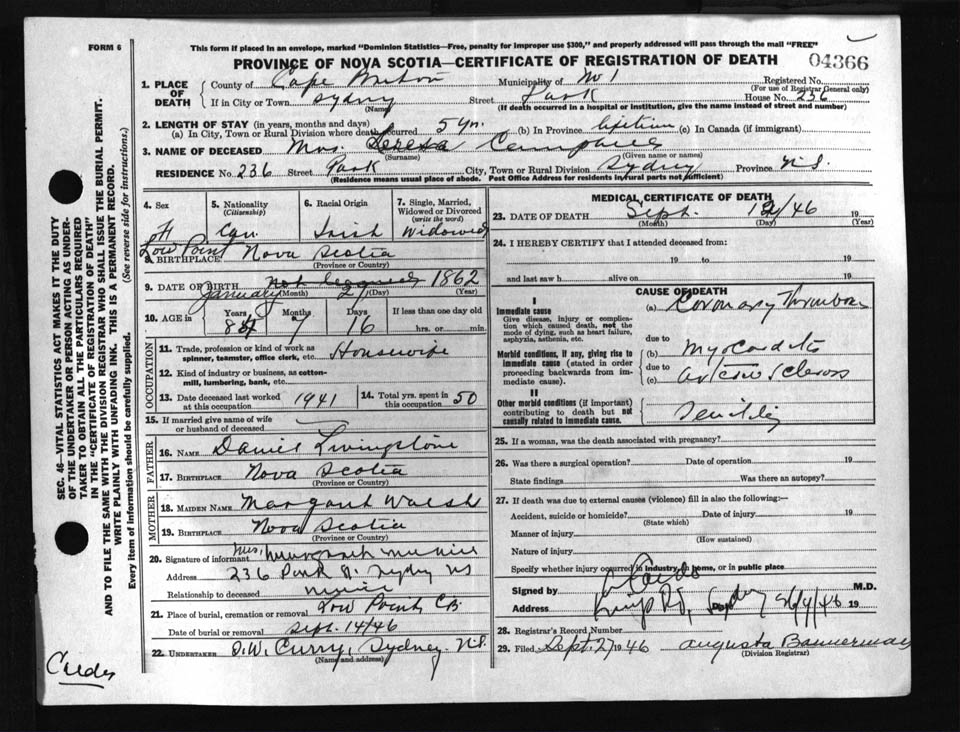 FORM 6
This form if placed in an envelope, marked "Dominion Statistics—Free, penalty for improper use $300," and properly addressed will pass through the mail "FREE"
PROVINCE OF NOVA SCOTIA—CERTIFICATE OF REGISTRATION OF DEATH
04366
1. PLACE OF DEATH
County of Cape Breton Municipality of No 1 Registered No.
(For use of Registrar General only)
If in City or Town Sydney Street Park House No. 236
(Name) (If death occurred in a hospital or institution, give the name instead of street and number)
2. LENGTH OF STAY (in years, months and days)
(a) In City, Town or Rural Division where death occurred 5 yrs. (b) In Province lifetime (c) In Canada (if immigrant)
3. NAME OF DECEASED Mrs. Teresa
(Surname) (Given name or names)
RESIDENCE No. 236 Street Park City, Town or Rural Division Sydney Province N.S.
(Residence means usual place of abode. Post Office Address for residents in rural parts not sufficient)
4. Sex F
5. Nationality (Citizenship) Can
6. Racial Origin Irish
7. Single, Married, Widowed or Divorced (write the word) Widowed
Low Point
8. BIRTHPLACE Nova Scotia
(Province or Country)
9. DATE OF BIRTH January 1862
(Month) (Day) (Year)
10. AGE in Years Months 7 Days 16 If less than one day old
hrs. or min.
OCCUPATION
11. Trade, profession or kind of work as spinner, teamster, office clerk, etc. Housewife
12. Kind of industry or business, as cotton-mill, lumbering, bank, etc.
13. Date deceased last worked at this occupation 1941 14. Total yrs. spent in this occupation 50
15. If married give name of wife or husband of deceased
FATHER
16. NAME Daniel Livingstone
17. BIRTHPLACE Nova Scotia
(Province or Country)
MOTHER
18. MAIDEN NAME Margaret Walsh
19. BIRTHPLACE Nova Scotia
(Province or Country)
20. Signature of informant Mrs.
Address 236 Park St. Sydney NS
Relationship to deceased
21. Place of burial, cremation or removal Low Point, CB
Date of burial or removal Sept. 14/46
22. UNDERTAKER D.W. Curry, Sydney, N.S.
(Name and address)
MEDICAL CERTIFICATE OF DEATH
23. DATE OF DEATH Sept. 12/46 19
(Month) (Day) (Year)
24. I HEREBY CERTIFY that I attended deceased from:
19 to 19
and last saw h alive on 19
CAUSE OF DEATH
I
Immediate cause
Give disease, injury or complication which caused death, not the mode of dying, such as heart failure, asphyxia, asthenia, etc.
(a) Coronary Thrombosis
due to
Morbid conditions, if any, giving rise to immediate cause (stated in order proceeding backwards from immediate cause).
(b) Myocarditis
due to
(c) arterio sclerosis
II
Other morbid conditions (if important) contributing to death but not causally related to immediate cause.
Senility
25. If a woman, was the death associated with pregnancy?
26. Was there a surgical operation? Date of operation 19
State findings Was there an autopsy?
27. If death was due to external causes (violence) fill in also the following:—
Accident, suicide or homicide? Date of injury 19
(State which)
Manner of injury
(How sustained)
Nature of injury
Specify whether injury occurred in industry, in home, or in public place
Signed by M.D.
Address Kings Rd, Sydney 19
28. Registrar's Record Number
29. Filed Sept. 27 1946 Augusta Bannerman
(Division Registrar)
SEC. 46—VITAL STATISTICS ACT MAKES IT THE DUTY OF THE UNDERTAKER OR PERSON ACTING AS UNDERTAKER TO OBTAIN ALL THE PARTICULARS REQUIRED IN THE "CERTIFICATE OF REGISTRATION OF DEATH" AND TO FILE THE SAME WITH THE DIVISION REGISTRAR WHO SHALL ISSUE THE BURIAL PERMIT.
WRITE PLAINLY WITH UNFADING INK. THIS IS A PERMANENT RECORD.
Every item of information should be carefully supplied. (See reverse side for instructions.)